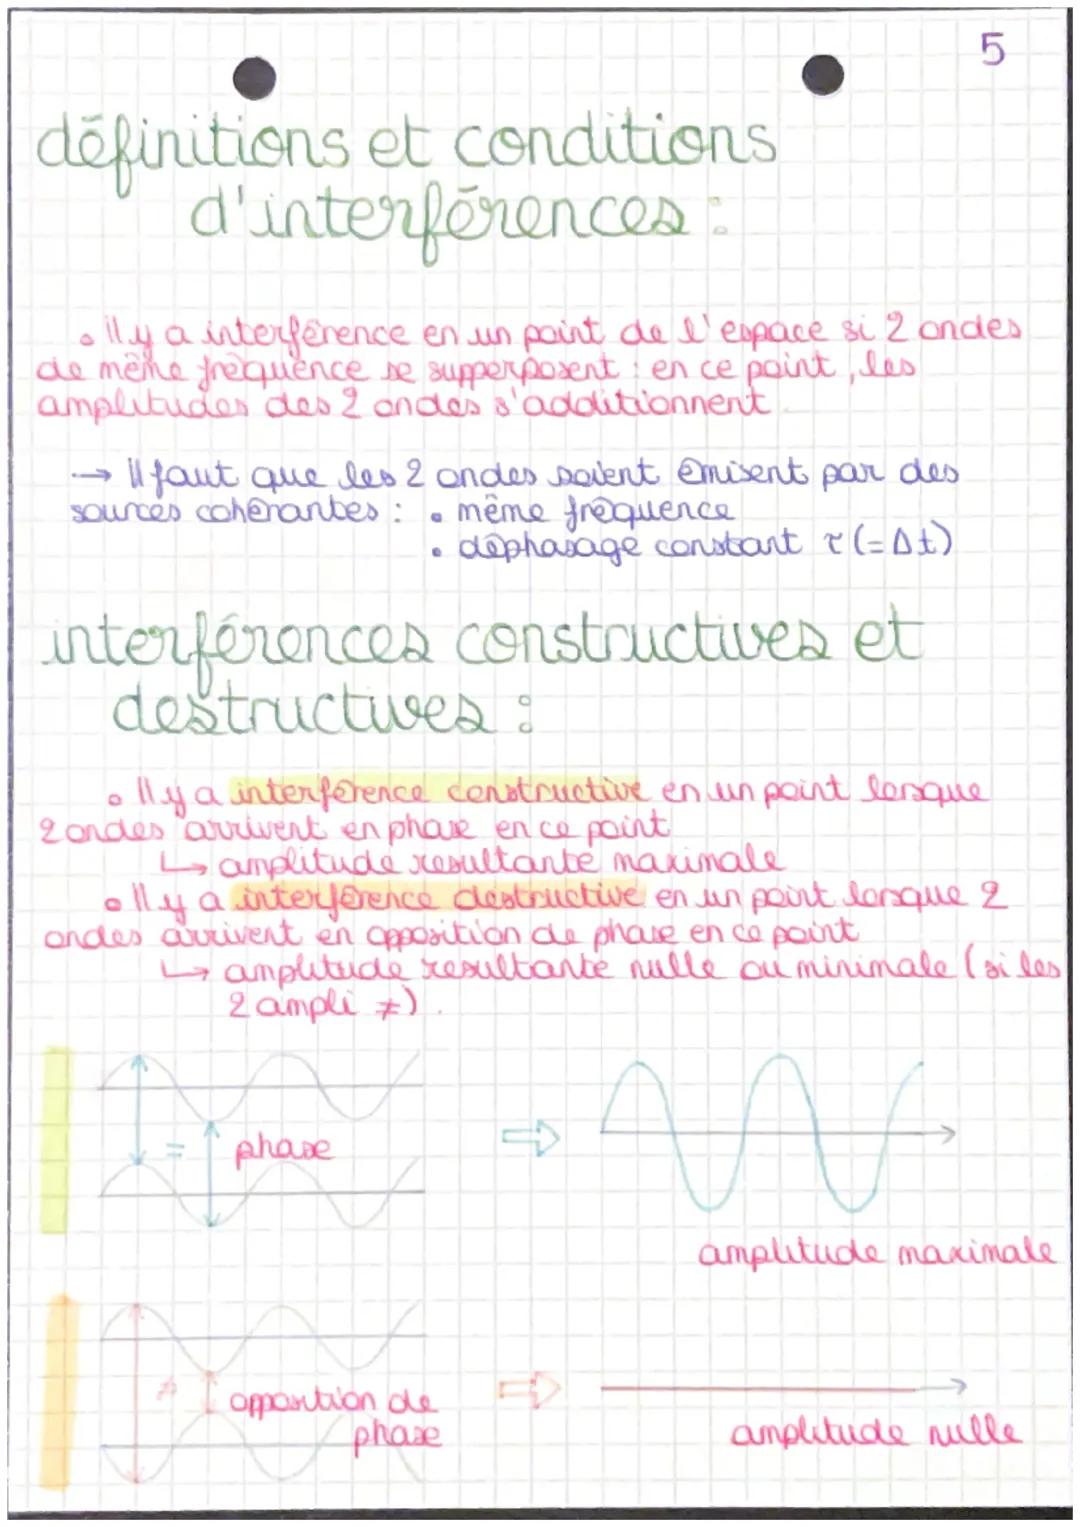 5
définitions et conditions
d'interférences :
• Il y a interférence en un point de l'espace si 2 ondes
de même fréquence se supperposent : en ce point, les
amplitudes des 2 ondes s'additionnent
→ Il faut que les 2 ondes soient émisent par des
sources cohérantes : • même fréquence
• déphasage constant τ (=Δt)
interférences constructives et
destructives :
• Il y a interférence constructive en un point lorsque
2 ondes arrivent en phase en ce point
↳ amplitude resultante maximale
• Il y a interférence destructive en un point lorsque 2
ondes arrivent en opposition de phase en ce point
↳ amplitude resultante nulle ou minimale (si les
2 ampli ≠).
= phase ⇒
amplitude maximale
≠ opposition de ⇒
phase
amplitude nulle